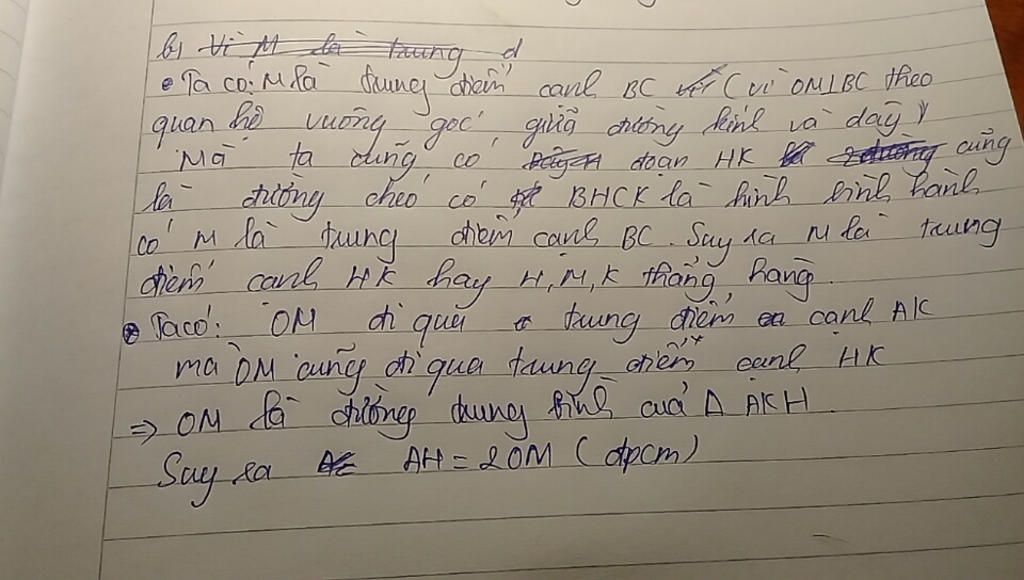 b, Vì M là trung đ
Ta có: M là trung điểm cạnh BC (vì OM⊥BC theo
quan hệ vuông góc giữa đường kính và dây)
Mà ta cũng có đoạn HK cũng
là đường chéo có BHCK là hình bình hành
có M là trung điểm cạnh BC. Suy ra M là trung
điểm cạnh HK hay H, M, K thẳng hàng.
Ta có: OM đi qua trung điểm cạnh AK
mà OM cũng đi qua trung điểm cạnh HK
⇒ OM là đường trung bình của Δ AKH.
Suy ra AH = 2OM (đpcm)